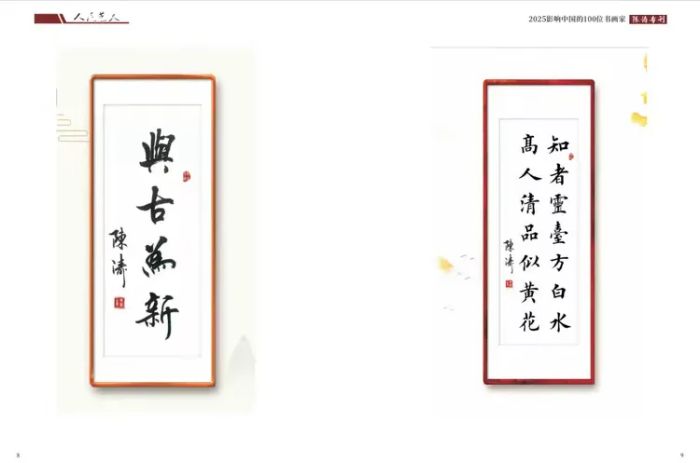 人民艺人
2025影响中国的100位书画家 陈涛专刊
與古為新
陳濤
知者靈臺方白水
高人清品似黄花
陳濤
8
9